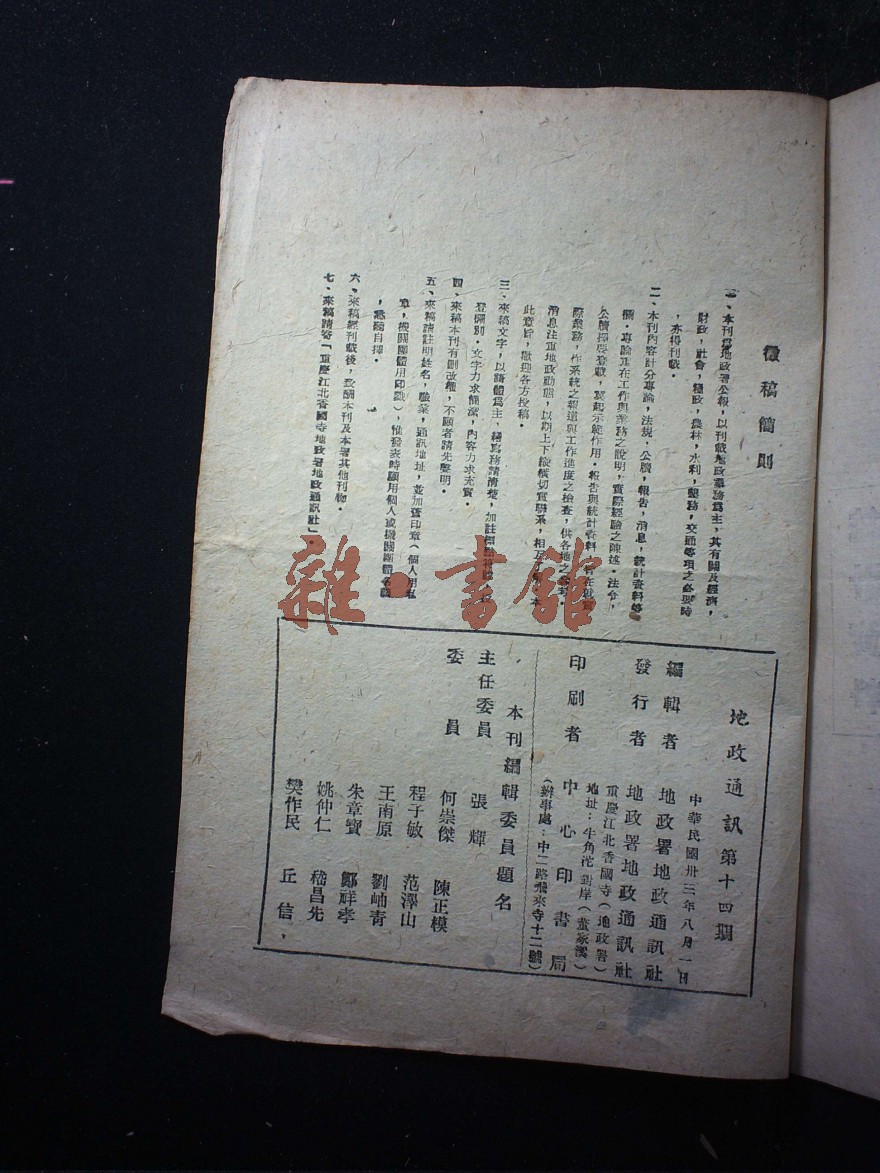 徵稿簡則
一、本刊爲地政署公報，以刊載地政業務爲主，其有關及經濟，
財政，社會，糧政，農林，水利，墾務，交通等項之必要時
，亦得刊載。
二、本刊內容計分專論，法規，公牘，報告，消息，統計資料等
欄。專論重在工作與業務之說明，實際經驗之陳述。法令，
公牘擇要登載，冀起示範作用。報告與統計資料
際業務，作系統之報道與工作進度之檢查，供各地之參考。
消息注重地政動態，以期上下縱橫切實聯系，相互
此意旨，歡迎各方投稿。
三、來稿文字，以語體爲主，繕寫務請清楚，加註標點符號
登欄別。文字力求簡潔，內容力求充實。
四、來稿本刊有刪改權，不願者請先聲明。
五、來稿請註明姓名，職業，通訊地址，並加蓋印章（個人用私
章，機關團體用印鑑），惟發表時願用個人或機關團體名義
，悉聽自擇。
六、來稿經刊載後，致酬本刊及本署其他刊物。
七、來稿請寄「重慶江北香國寺地政署地政通訊社」。
雜·書館
地政通訊第十四期
中華民國卅三年八月一日
編輯者 地政署地政通訊社
發行者 地政署地政通訊社
重慶江北香國寺（地政署）
地址：牛角沱對岸（董家溪）
印刷者 中心印書局
（辦事處：中二路飛來寺十二號）
本刊編輯委員題名
主任委員 張輝
委員 何崇傑 陳正模
程子敏 范澤山
王南原 劉岫青
朱章寶 鄒祥孝
姚仲仁 嵇昌先
樊作民 丘信，